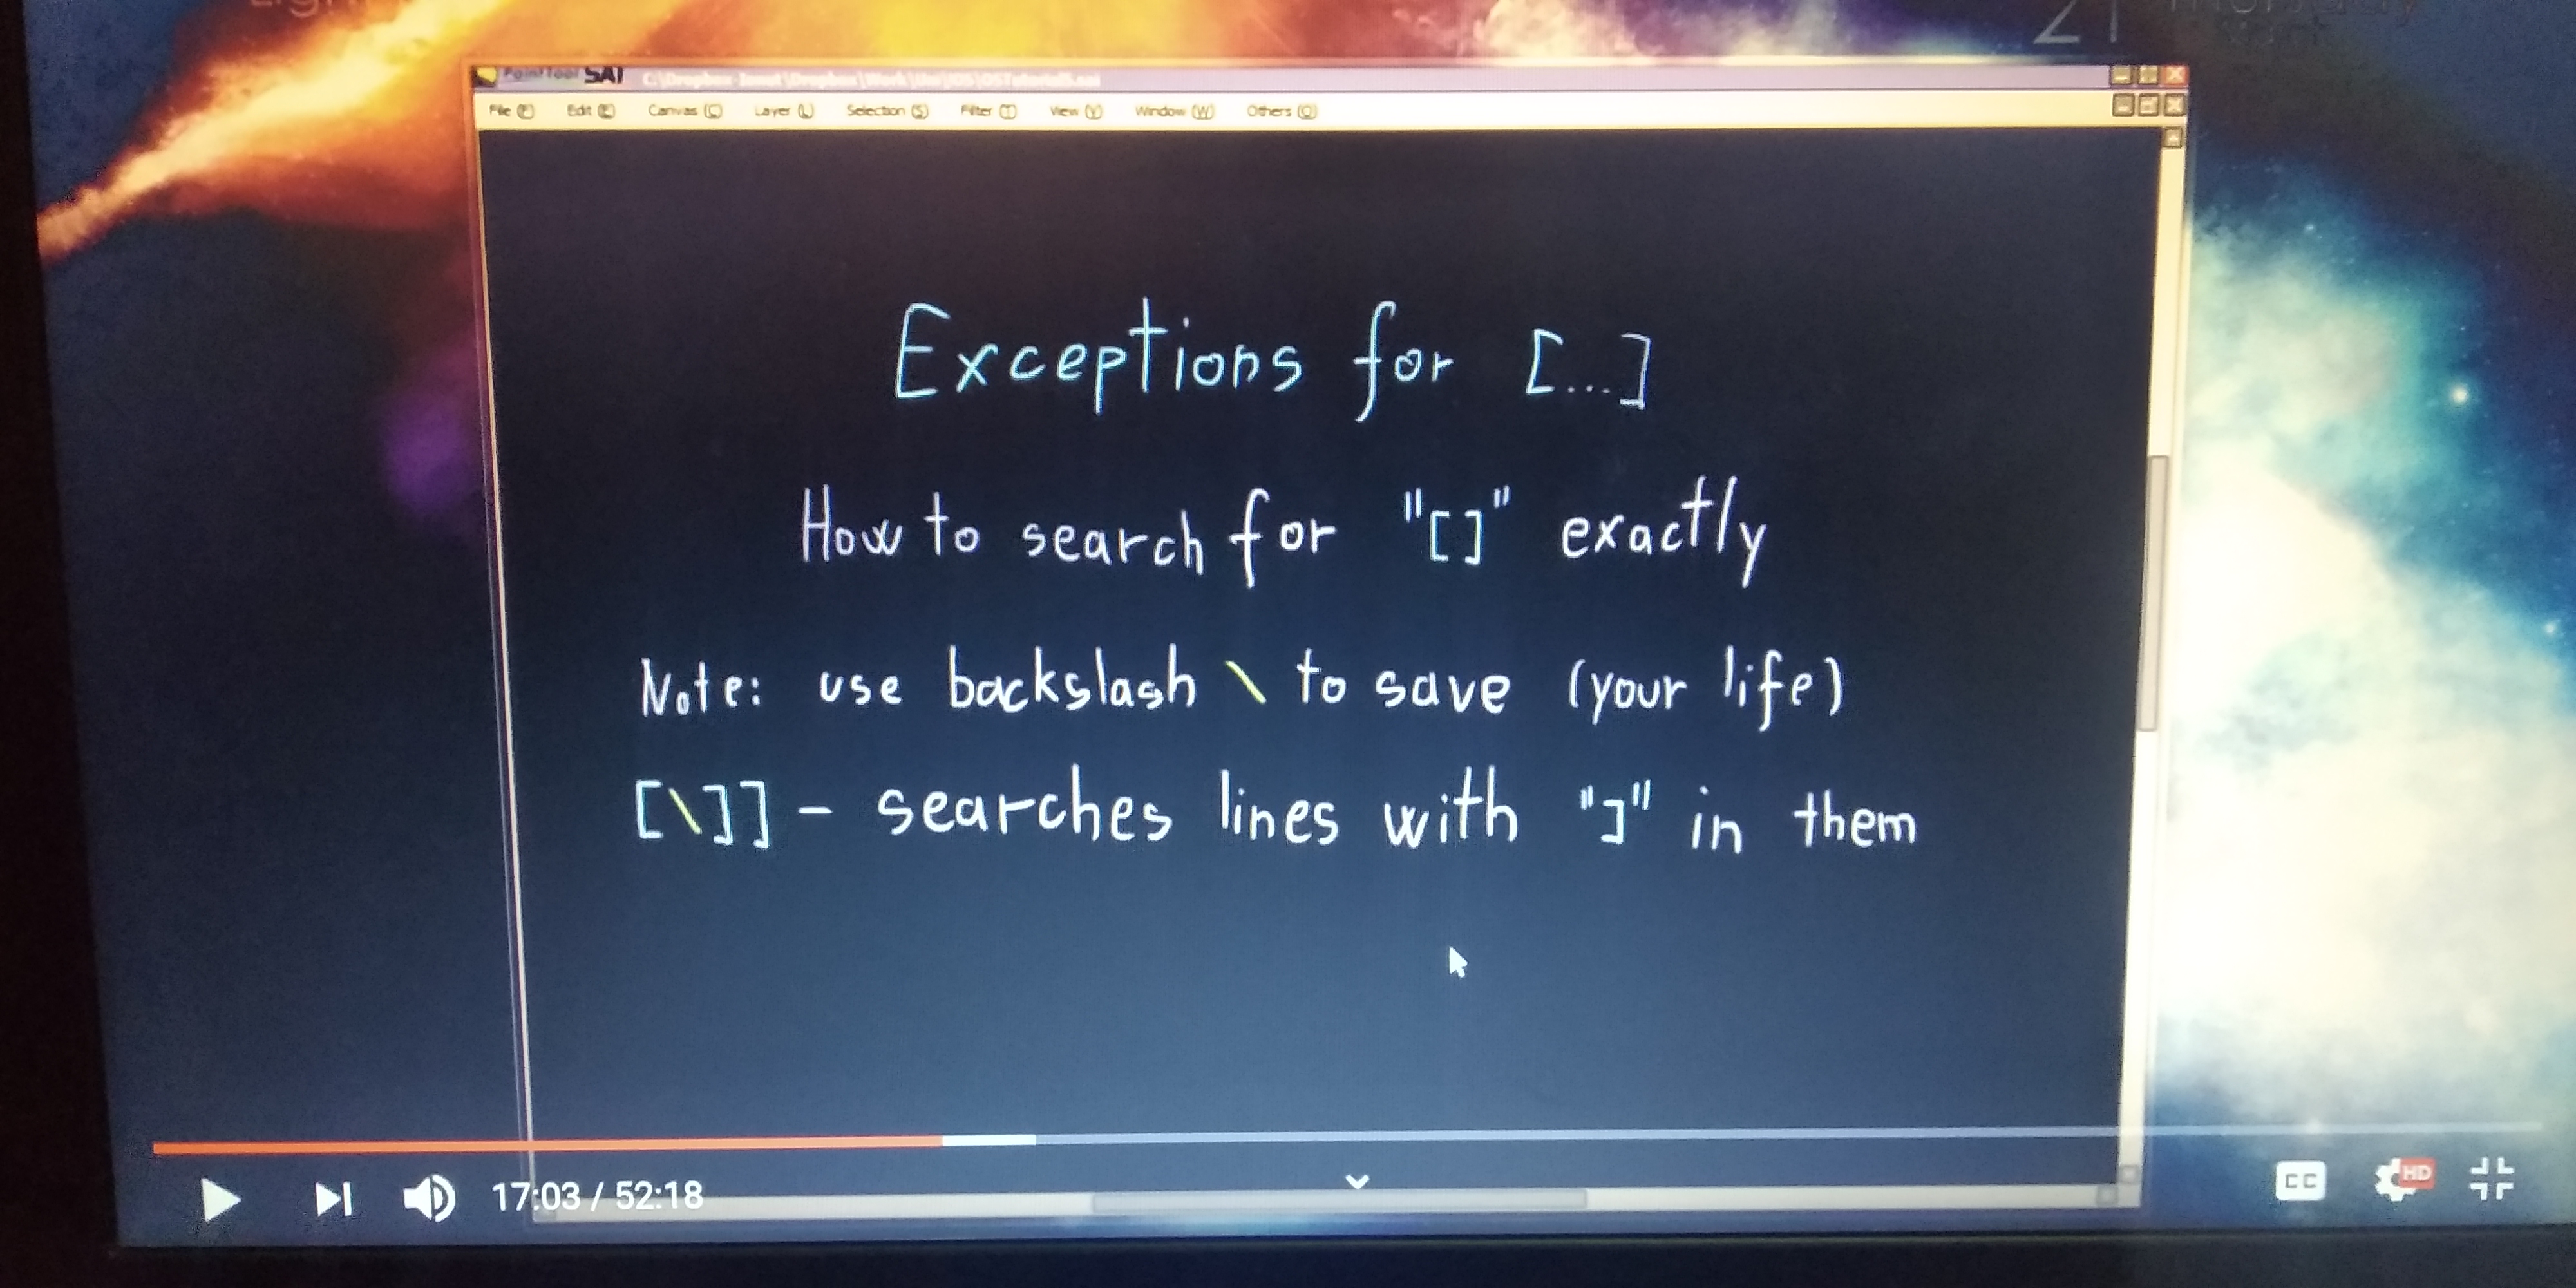 21
PaintTool SAI
File (F) Edit (E) Canvas (C) Layer (L) Selection (S) Filter (T) View (V) Window (W) Others (O)
Exceptions for [...]
How to search for "[]" exactly
Note: use backslash \ to save (your life)
[\]] - searches lines with "]" in them
17:03 / 52:18
CC
HD